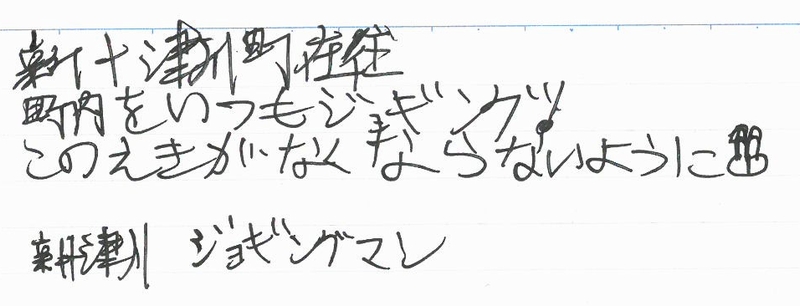 新十津川町在住
町内をいつもジョギング!
このえきがなくならないように
新十津川 ジョギングマン